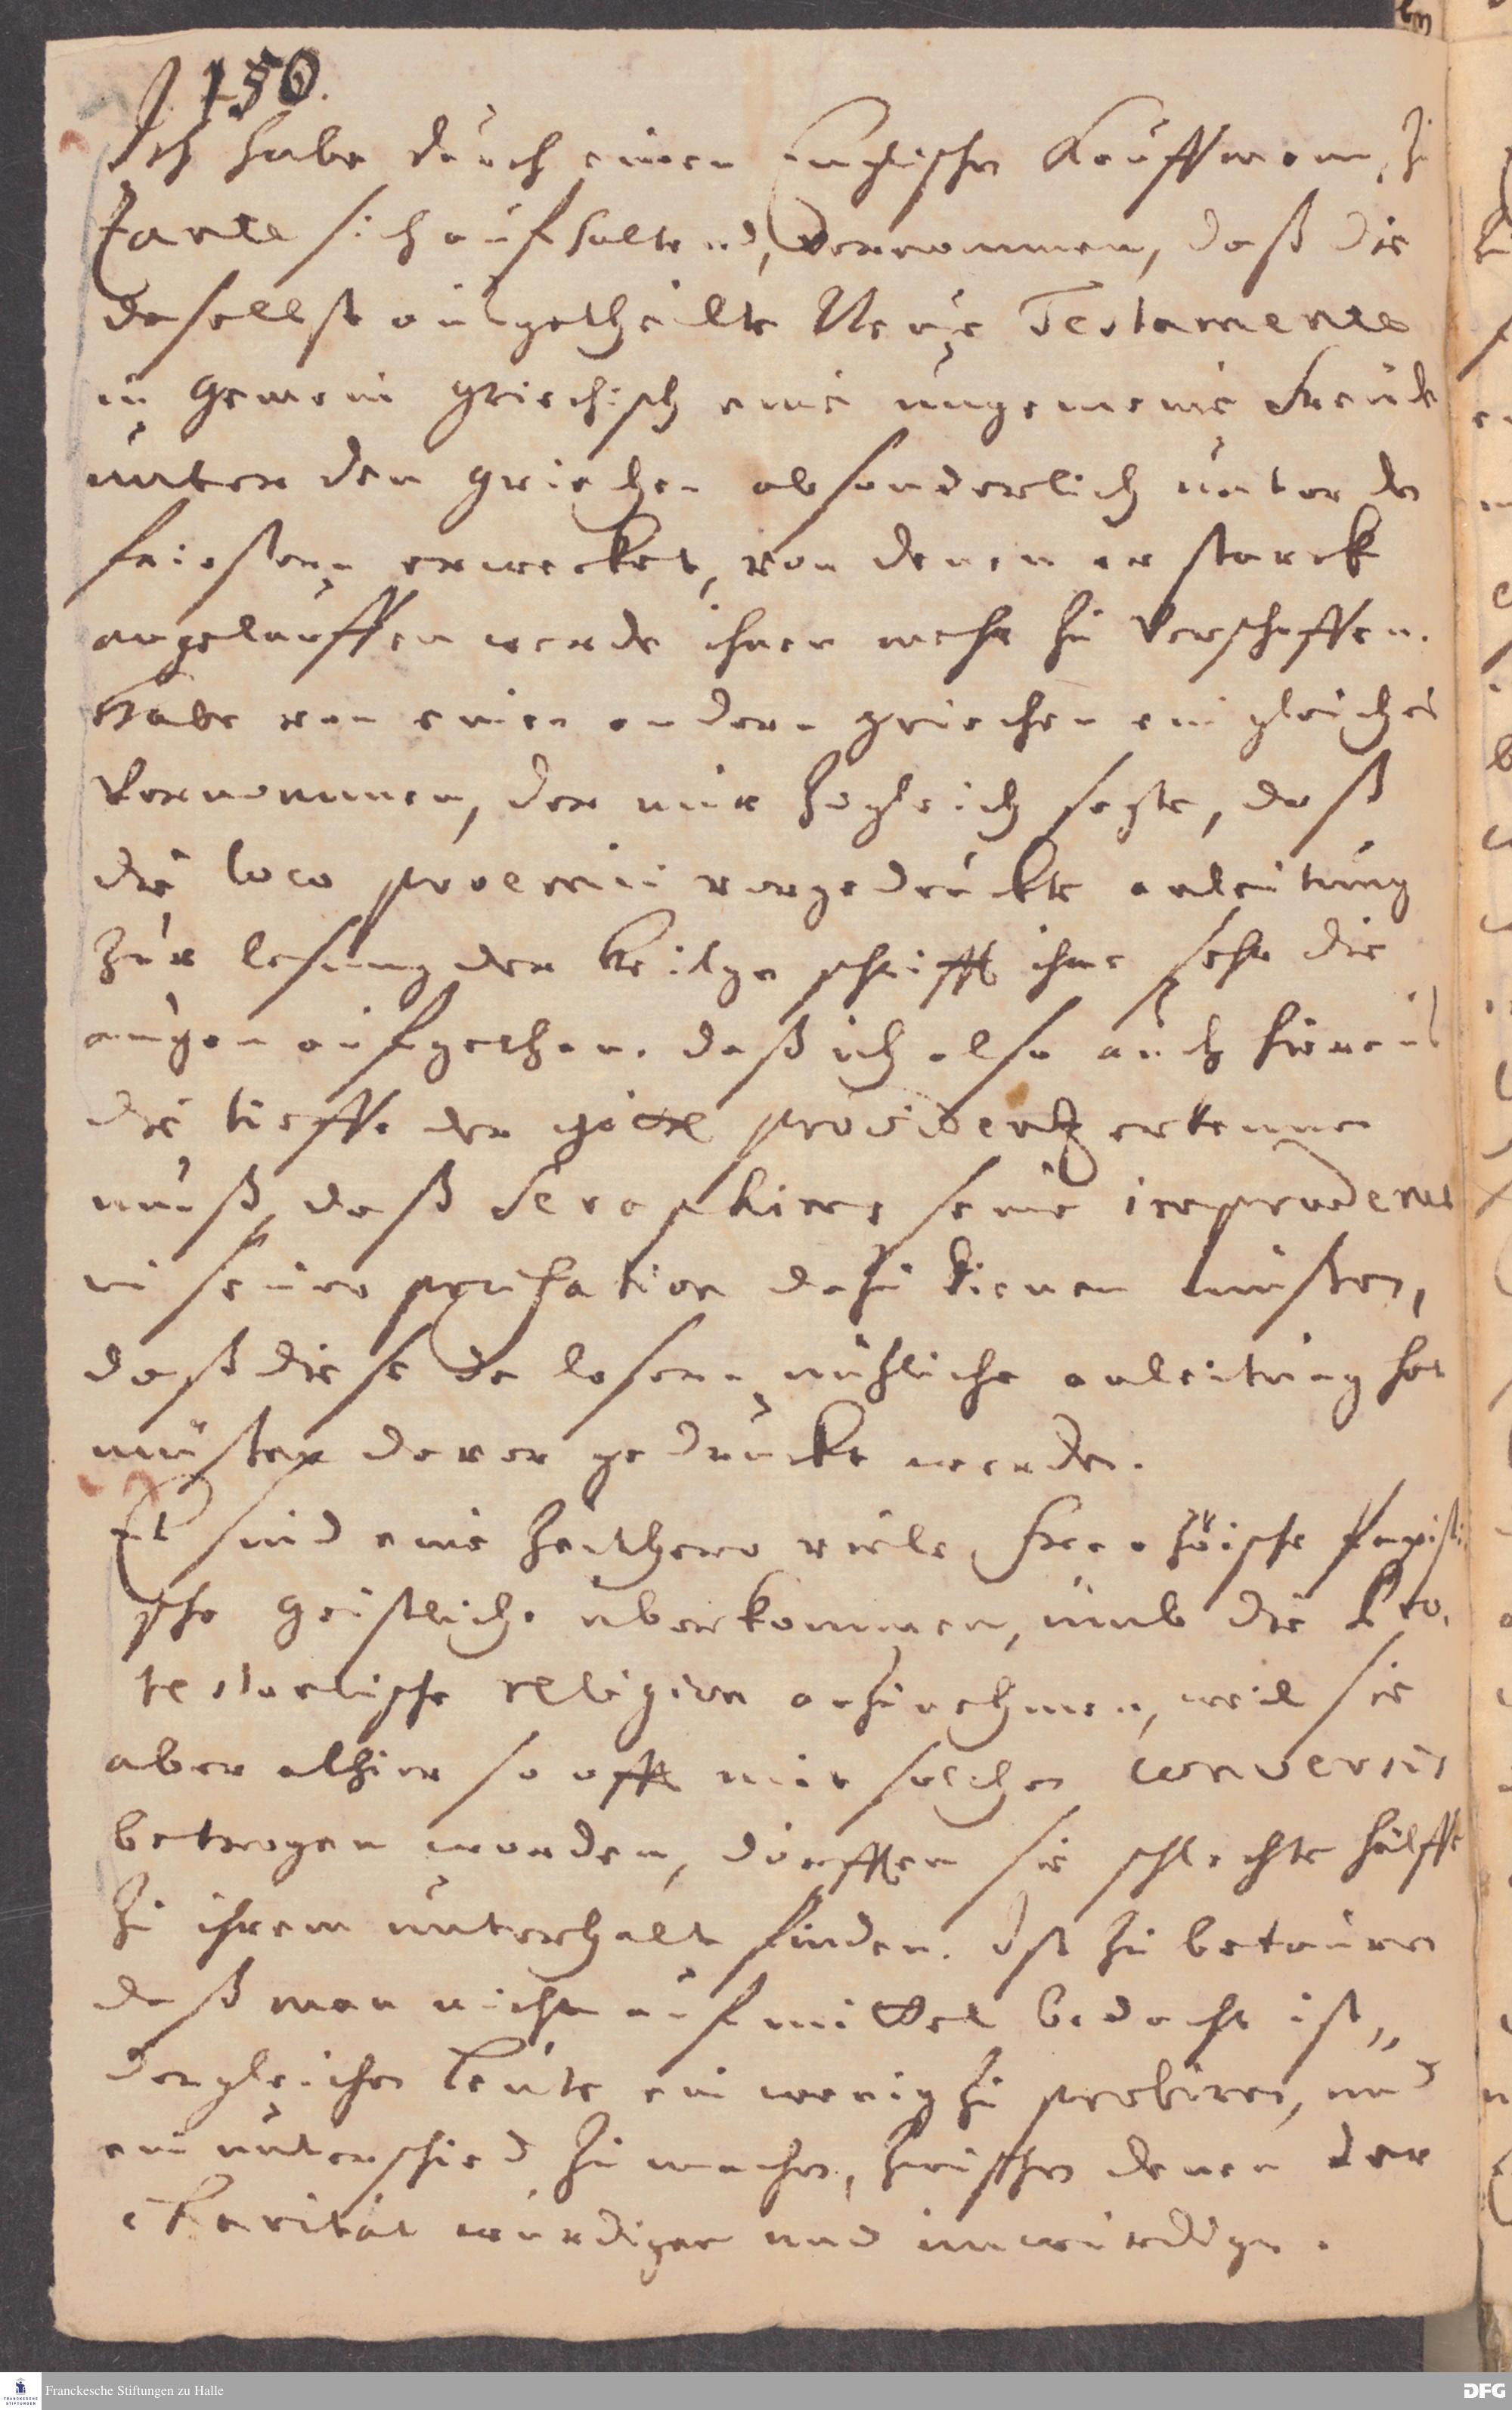 150.
Ich habe durch einen Englischen Kauffmann, zu
Zante sich aufhaltend, vernommen, daß die
daselbst ausgetheilte Neue Testamente
in gemein griechisch eine ungemeine Freude
unter den griechen absonderlich unter den
Priestern erwecket, von denen er starck
angelauffen werde ihnen mehr zu verschaffen.
Habe von einen andern griechen ein gleiches
vernommen, der mir zugleich sagte, daß
die loco proemii vorgedruckte anleitung
zur lesung der heiligen schrifft ihme sehr die
augen aufgethan. daß ich also auch hieraus
die tieffe der göttl providentz erkennen
muß, daß Seraphims seine imprudenz
in seiner præfation dazu dienen müßen,
daß diese den lesern nützliche anleitung hat
müßen davor gedruckt werden.
Es sind eine zeithero viele Frantzöische papisti
sche geistliche überkommen, umb die Pro-
testantische religion anzunehmen, weil sie
aber alhier so offt mit solchen conversis
betrogen worden, dörffen sie schlechte hülffe
zu ihrem unterhalt finden. Ist zu betauren
daß man nicht auf mittel bedacht ist,
dergleichen Leute ein wenig zu probiren, und
ein unterschied zu machen, zwischen denen der
charität würdigen und unwürdigen.
Franckesche Stiftungen zu Halle
DFG